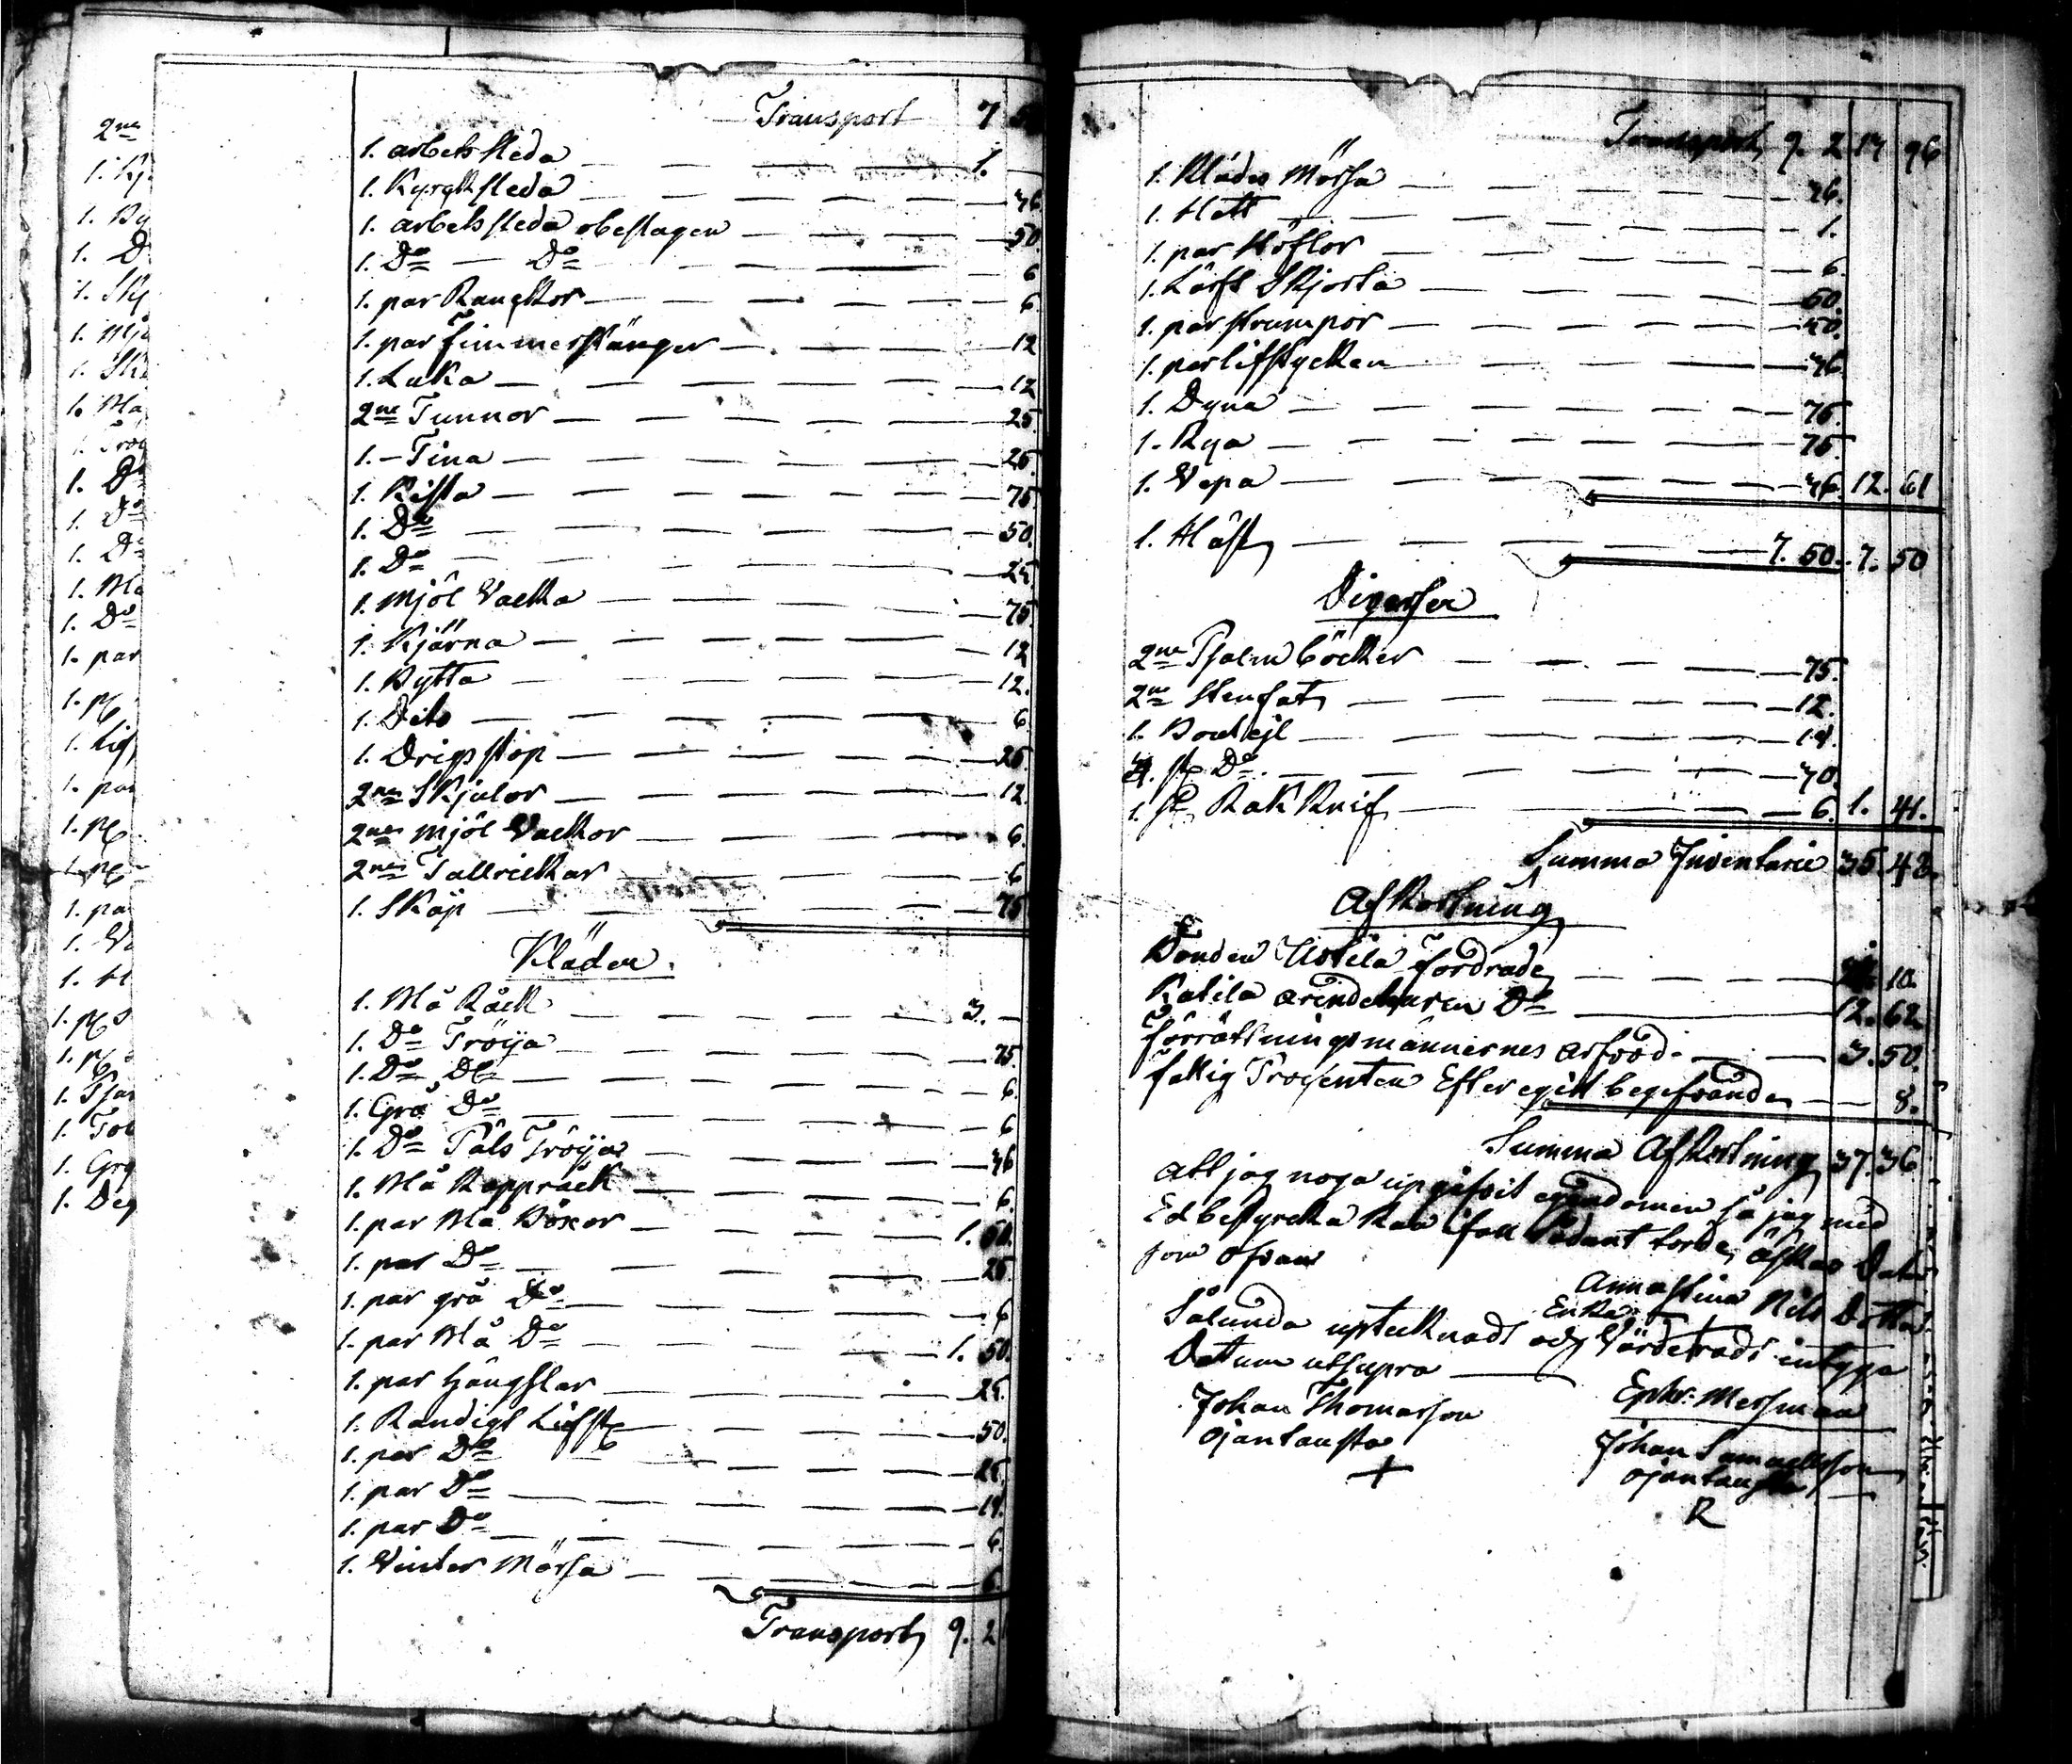 2ne
1. Kj
1. By
1. D
1. Skj
1. Mjö
1. Sk
1. Blå
1. Tröj
1. Do
1. Do
1. Do
1. Blå
1. Do
1. par
1. p
1. Lif
1. par
1. p
1. p
1. pa
1.
1. H
1. p
1. p
1.
1.
1. Grå
1. Deg
Transport 7 5
1. arbets släda — 1. —
1. Kyrcksläda — 36.
1. arbets släda obeslagen — 50.
1. Do — Do — 6
1. par Ranckor — 6.
1. par Timmerstänger — 12
1. Luka — 12
2ne Tunnor — 25.
1. – Tina — 25.
1. Kista — 75.
1. Do — 50.
1. Do — 25.
1. Mjöl Vacka — 75.
1. Kjärna — 12
1. Bytta — 12.
1. Dito — 6
1. Drigsstop — 25.
2ne Skjulor — 12
2ne Mjöl Vackor — 6.
2ne Tallrickar — 6
1. Skåp — 75
Kläder.
1. Blå Råck — 3. —
1. Do Tröija — 75.
1. Do Do — 6.
1. Grå Do — 6
1. Do Päls Tröija — 36
1. Blå Kappråck — 6.
1. par Blå Böxor — 1. 50.
1. par Do — 25.
1. par grå Do — 6
1. par Blå Do — 1. 50.
1. par Hängslar — 25.
1. Randigt Lifst — 50.
1. par Do — 25.
1. par Do — 19.
1. par Do — 6.
1. Vinter Mössa — 6.
Transport 9. 2
Transport 9. 2 14 96
1. Klädes Mössa — 36.
1. Hatt — 1.
1. par Stöflor — 6.
1. Lärft Skjorta — 50.
1. par strumpor — 40.
1. par lifstycken — 36.
1. Dyna — 75.
1. Rya — 75.
1. Vepa — 36. 12. 61
1. Häst — 7. 50. 7. 50
Diverser
2ne Psalm böcker — 75.
2ne Stenfat — 12.
1. Boutejl — 18.
4. st Do — 30.
1. st Rak Knif — 6. 1. 41.
Summa Inventarie 35. 48.
Afkortning
Bonden Uotila fordrade — 10.
Katila arendehuren Do — 12. 62
Förrättningsmännernes arfvod — 3. 50.
fattig Procenten Efter egit begefvande — 8.
Summa Afkortning 37. 36
Att jag noga upgifvit egendomen så jag med
Ed bestyrcka kan ifall sådant torde äskas Datum
som ofvan
Anna Stina Nils Dotter
Enka
Sålunda upteknadt och Värderadt intyga
Datum utsupra
Johan Thomasson
Ojantausta
+
Ephr: Messman
Johan Samuelsson
Ojantausta
R